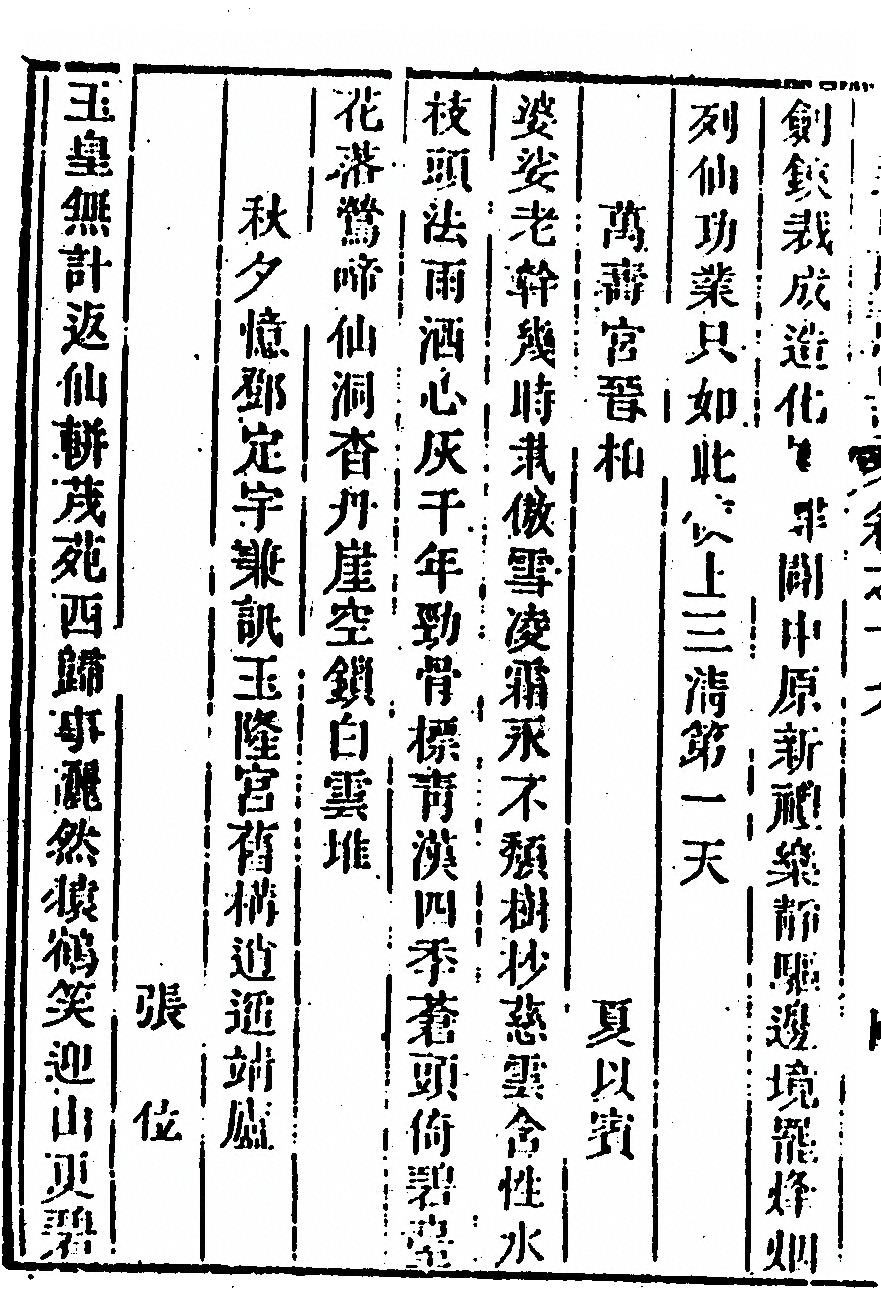 劍鋏裁成造化開中原新禮樂靜驅邊境罷烽烟
列仙功業只如此上三清第一天
萬壽宮晉柏　夏以賓
婆娑老幹幾時栽傲雪凌霜永不頹樹杪慈雲含性水
枝頭法雨洒心灰千年勁骨標青漢四季蒼頭倚碧臺
花落鶯啼仙洞杳丹崖空鎖白雲堆
秋夕憶鄧定宇兼訊玉隆宮舊構逍遙靖廬
張　位
玉皇無計返仙軿茂苑西歸事灑然猿鶴笑迎山更碧